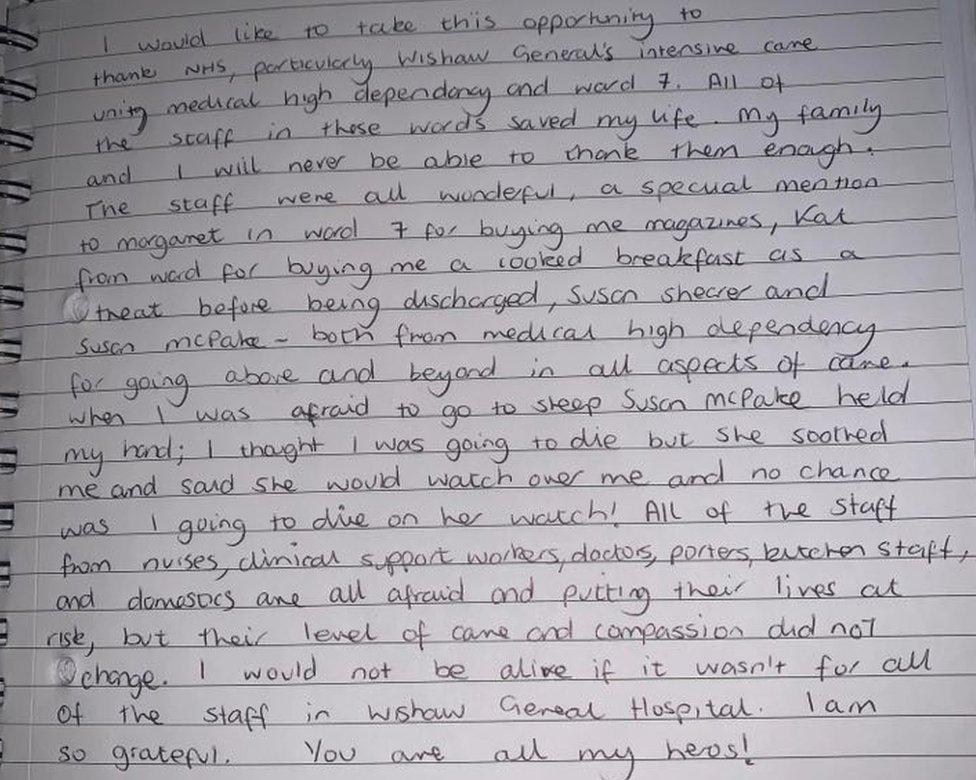 I would like to take this opportunity to
thank NHS, particularly Wishaw General's intensive care
unity medical high dependancy and ward 7. All of
the staff in these wards saved my life. My family
and I will never be able to thank them enough.
The staff were all wonderful, a special mention
to margaret in ward 7 for buying me magazines, Kat
from ward for buying me a cooked breakfast as a
treat before being discharged, Susan shearer and
Susan mcPake - both from medical high dependency
for going above and beyond in all aspects of care.
when I was afraid to go to sleep Susan mcPake held
my hand; I thought I was going to die but she soothed
me and said she would watch over me and no chance
was I going to die on her watch! All of the staff
from nurses, clinical support workers, doctors, porters, kitchen staff,
and domestics are all afraid and putting their lives at
risk, but their level of care and compassion did not
change. I would not be alive if it wasn't for all
of the staff in Wishaw Geneal Hospital. I am
so grateful. You are all my heros!